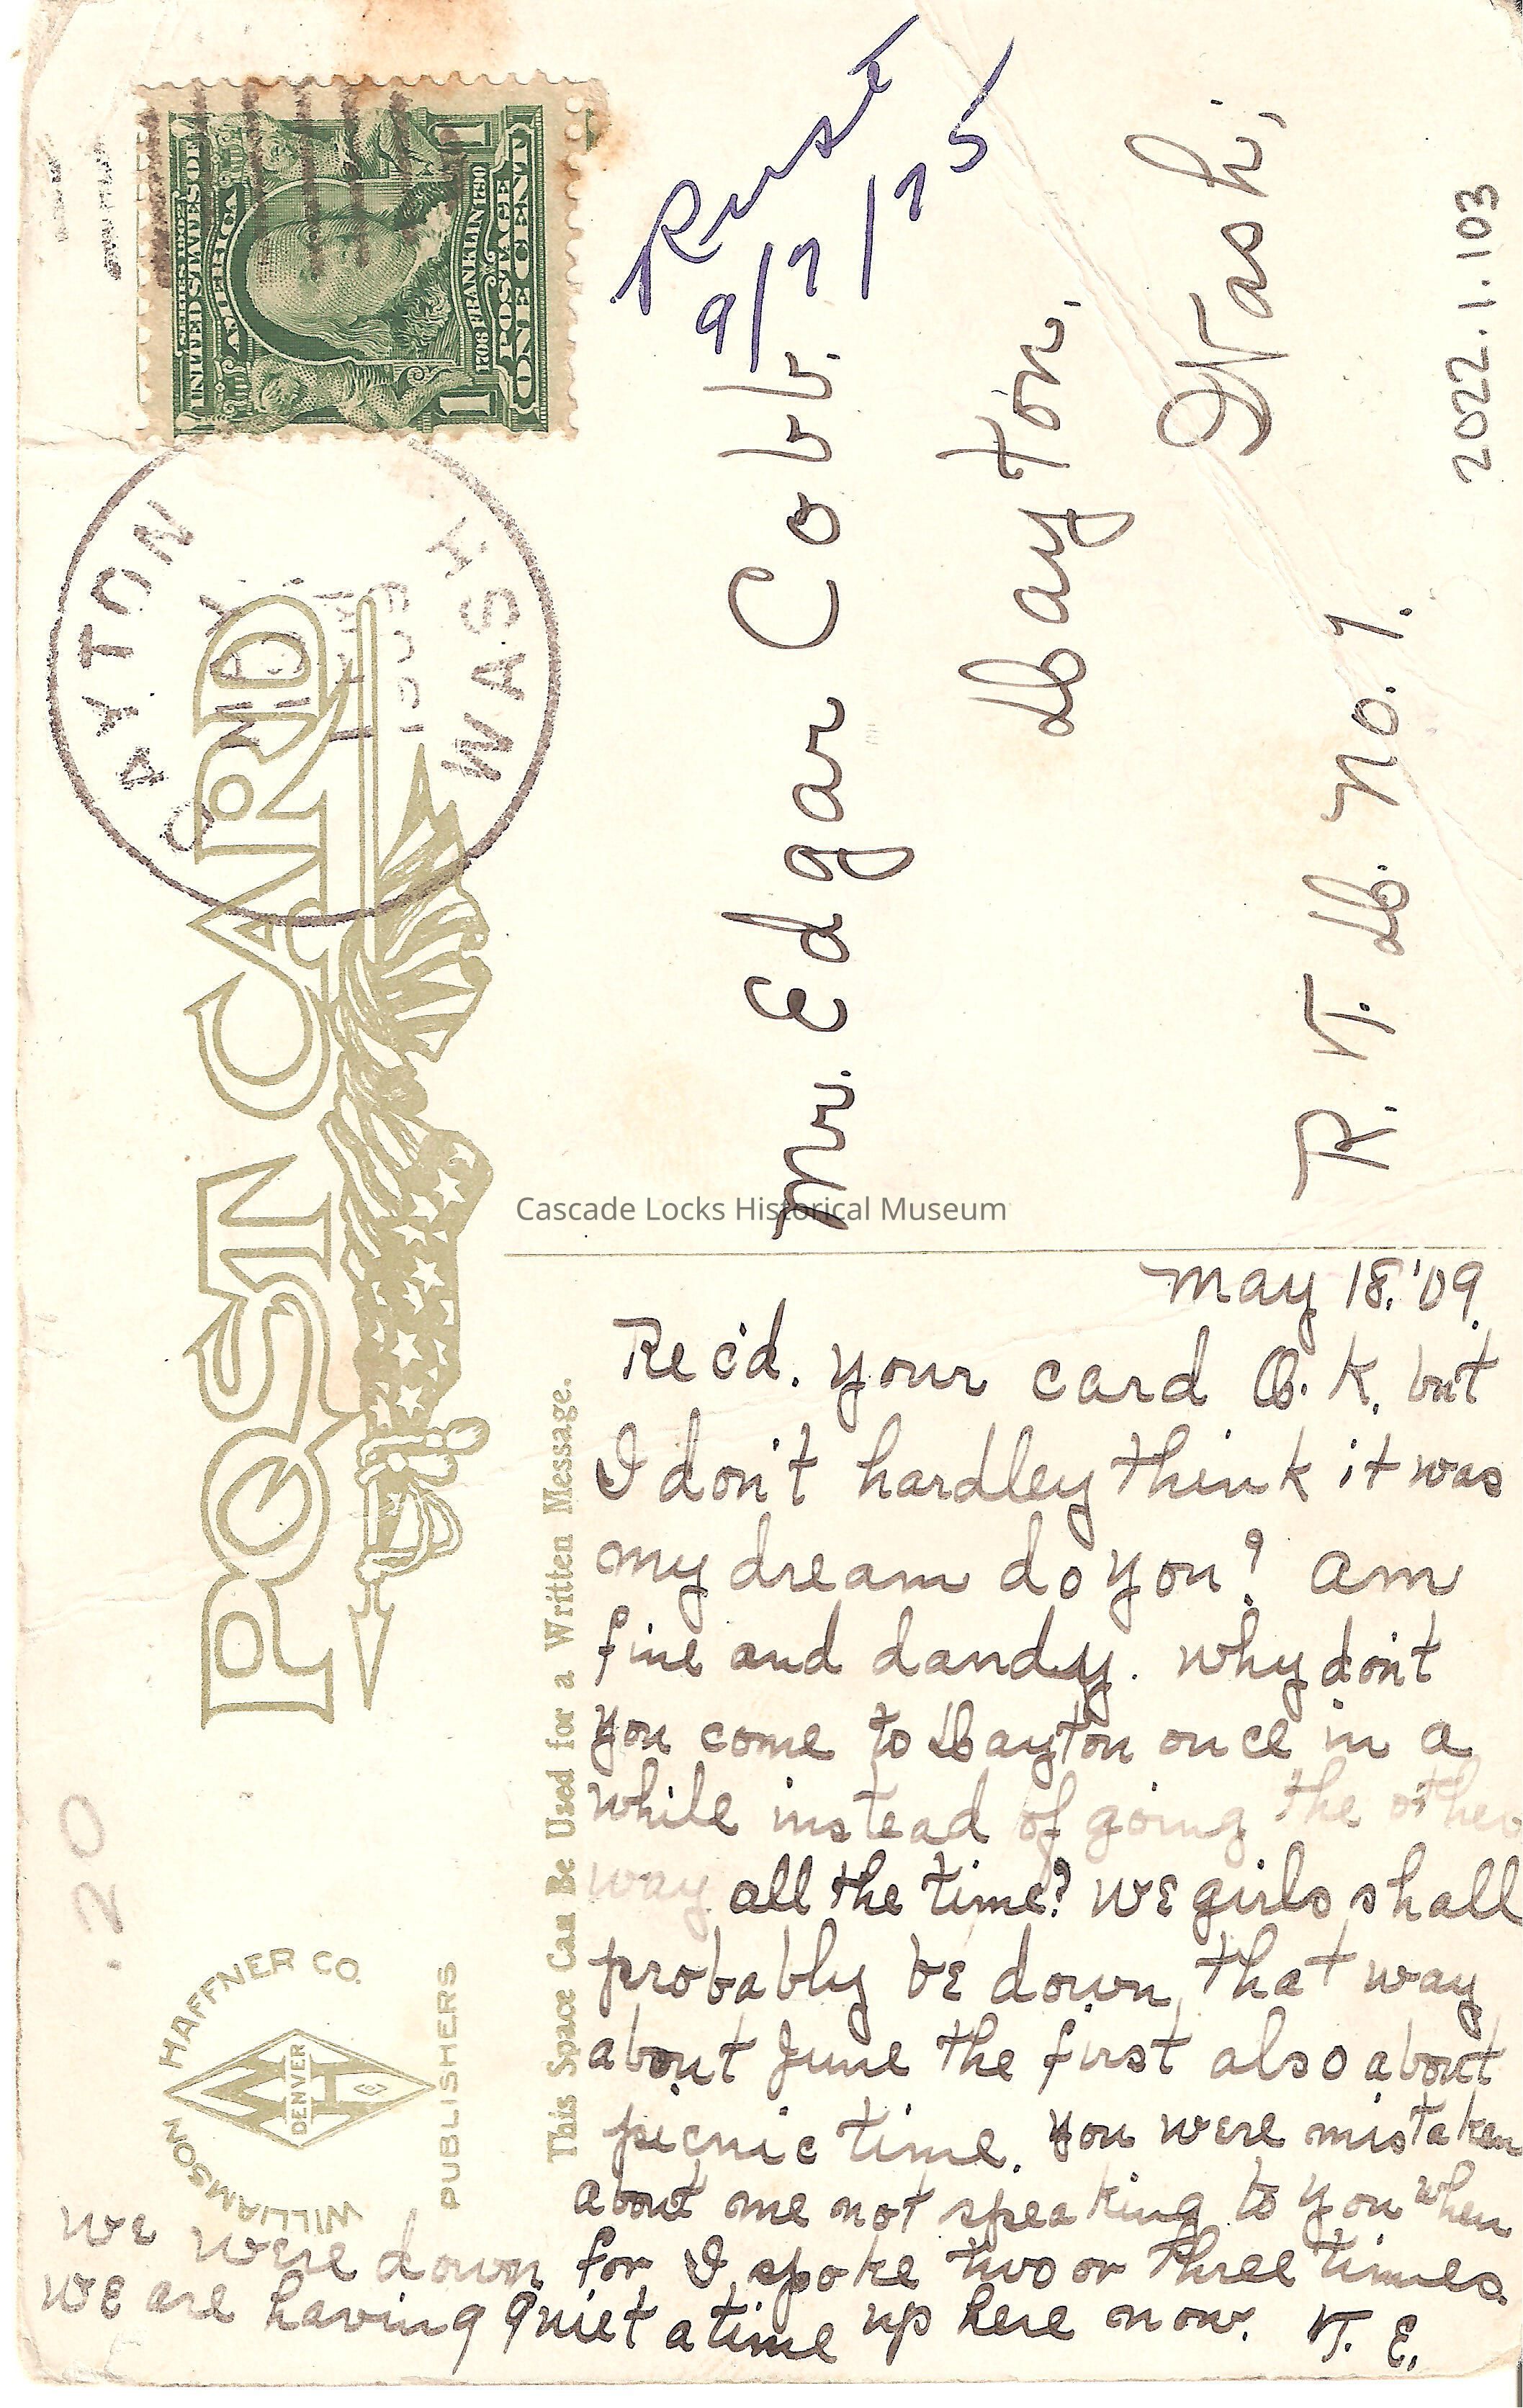 POST CARD
DAYTON
MAY
1909
WASH.
SERIES 1902
UNITED STATES OF
AMERICA
1706 FRANKLIN 1790
POSTAGE
1 ONE CENT 1
Rust
9/7/75
Mr. Edgar Cobb.
Dayton.
Wash.
R. F. D. No. 1.
2022.1.103
Cascade Locks Historical Museum
.20
WILLIAMSON HAFFNER CO.
DENVER
PUBLISHERS
This Space Can Be Used for a Written Message.
May 18.'09.
Rec'd. your card O.K. but
I don't hardley think it was
my dream do you? Am
fine and dandy. Why don't
you come to Dayton once in a
while instead of going the other
way all the time? We girls shall
probably be down that way
about June the first also about
picnic time. You were mistaken
about me not speaking to you when
we were down for I spoke two or three times.
We are having quiet a time up here now. F. E.